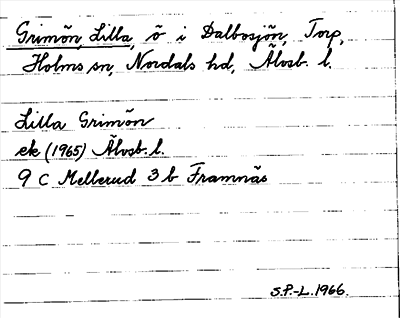 Grimön, Lilla, ö i Dalbosjön, Torp,
Holms sn, Nordals hd, Älvsb. l.
Lilla Grimön
ek (1965) Älvsb. l.
9 C Mellerud 3 b Framnäs
S.P.-L. 1966.